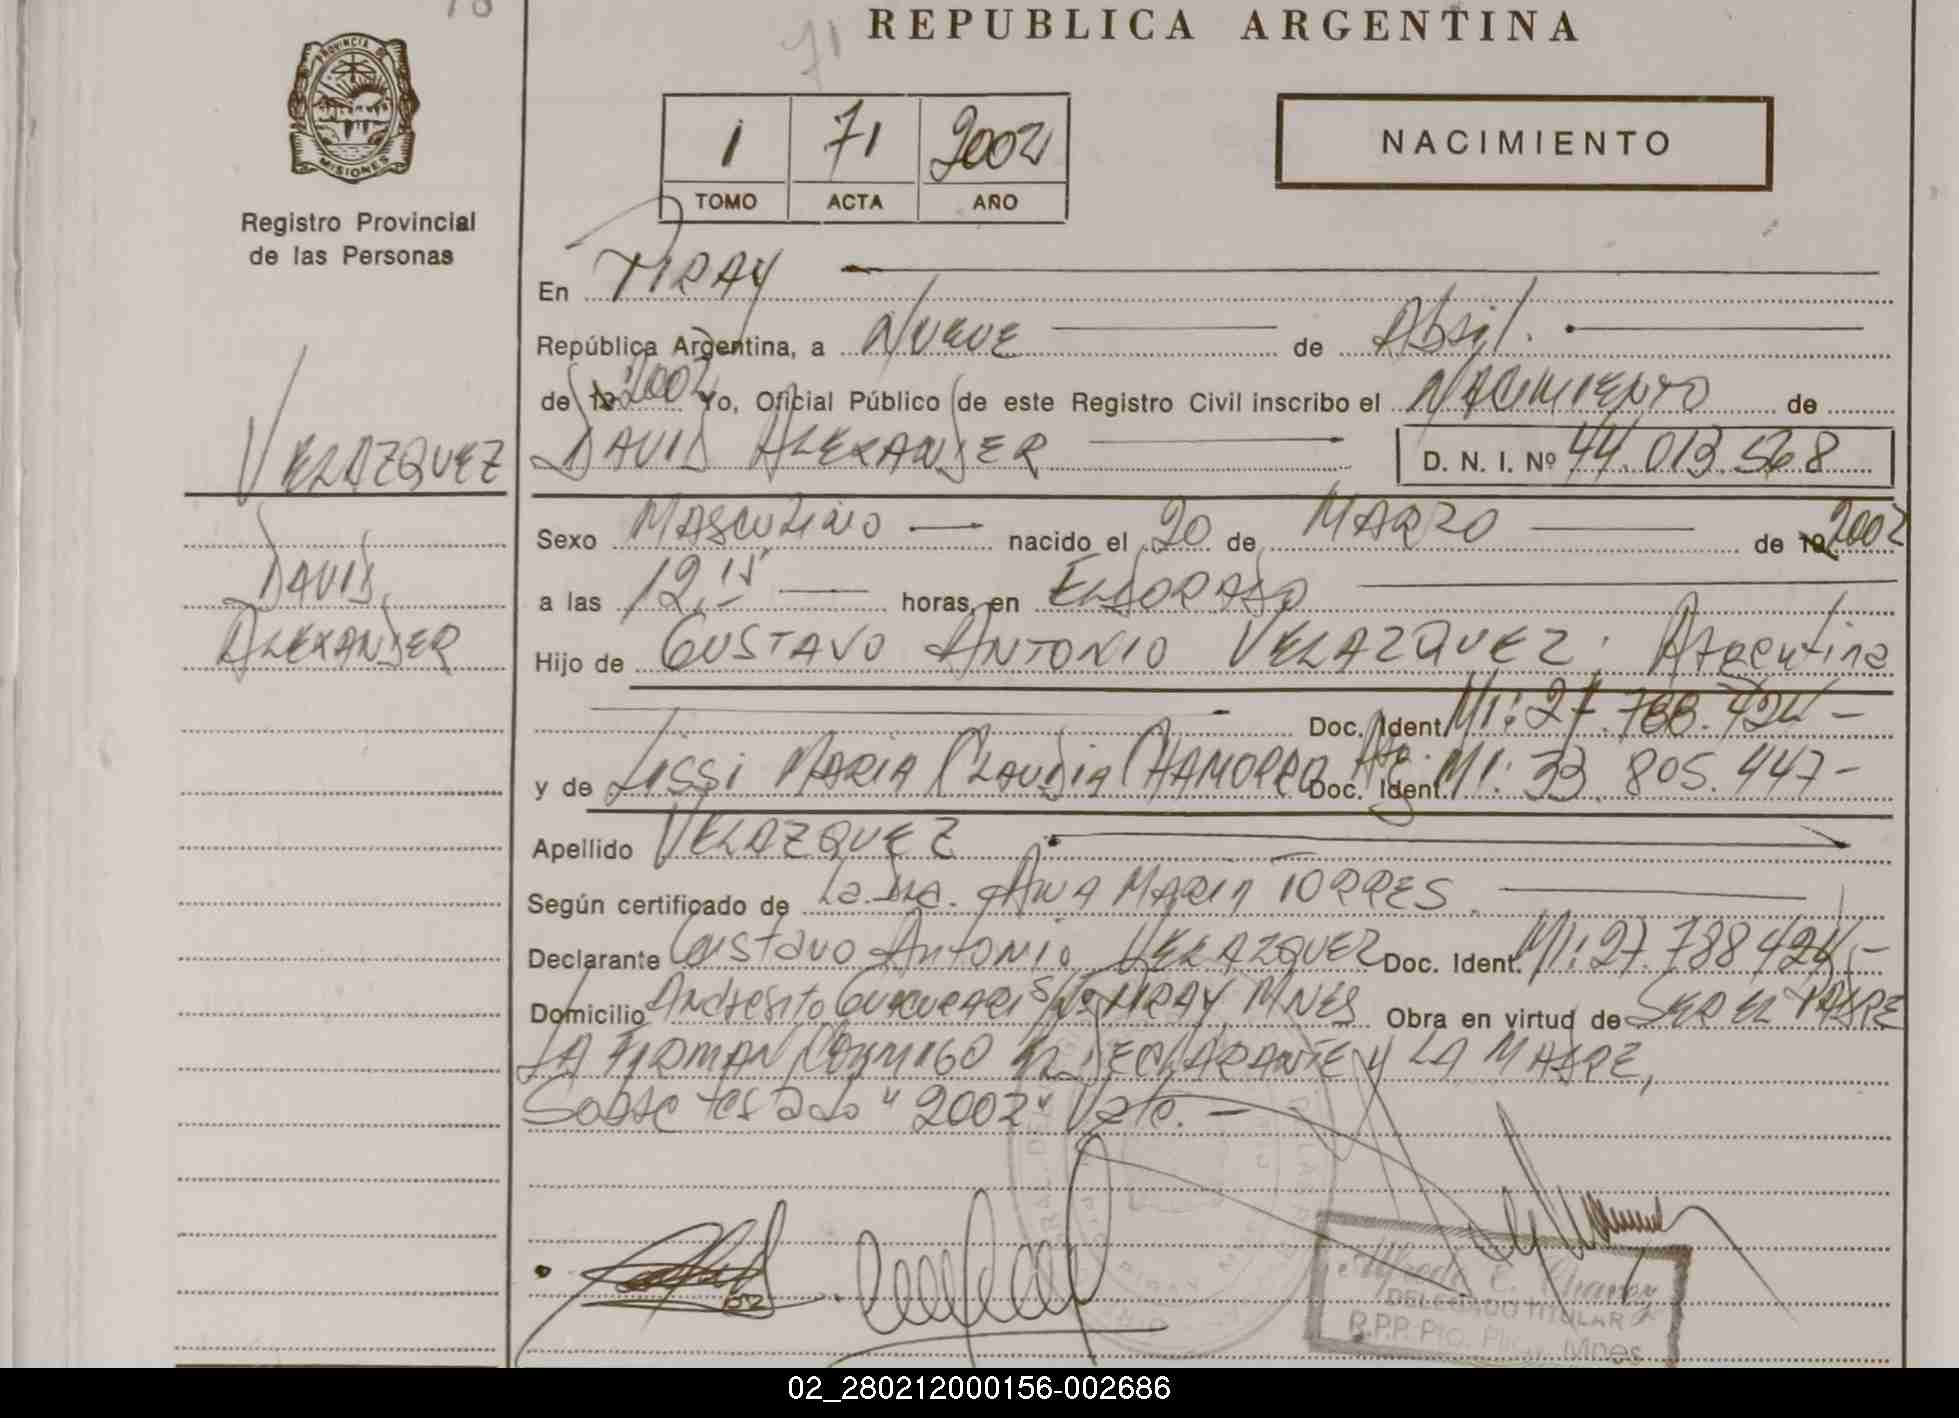 71
REPUBLICA ARGENTINA
PROVINCIA DE
MISIONES
Registro Provincial
de las Personas
1 71 2002
TOMO ACTA AÑO
NACIMIENTO
En PIRAY
República Argentina, a NUEVE de Abril.
de 19 2002 Yo, Oficial Público de este Registro Civil inscribo el NACIMIENTO de
VELAZQUEZ
DAVID ALEXANDER D. N. I. Nº 44.013.568
Sexo MASCULINO nacido el 20 de MARZO de 19 2002
DAVID
a las 12,15 horas, en ELDORADO
ALEXANDER
Hijo de GUSTAVO ANTONIO VELAZQUEZ. Argentina
Doc. Ident. MI: 27.788.424-
y de Lissi MARIA CLAUDIA CHAMORRO Arg. Doc. Ident. MI: 33.805.447-
Apellido VELAZQUEZ
Según certificado de La Dra. ANA MARIA TORRES
Declarante Gustavo ANTONIO VELAZQUEZ Doc. Ident. MI: 27.788424-
Domicilio Andresito GUACURARI S/Nº PIRAY MNES Obra en virtud de SER EL PADRE
LA FIRMAN CONMIGO EL DECLARANTE Y LA MADRE,
Sobre testado "2002" Vale. -
DELEGADO TITULAR
R.P.P. Pto. Piray Mnes
02_280212000156-002686